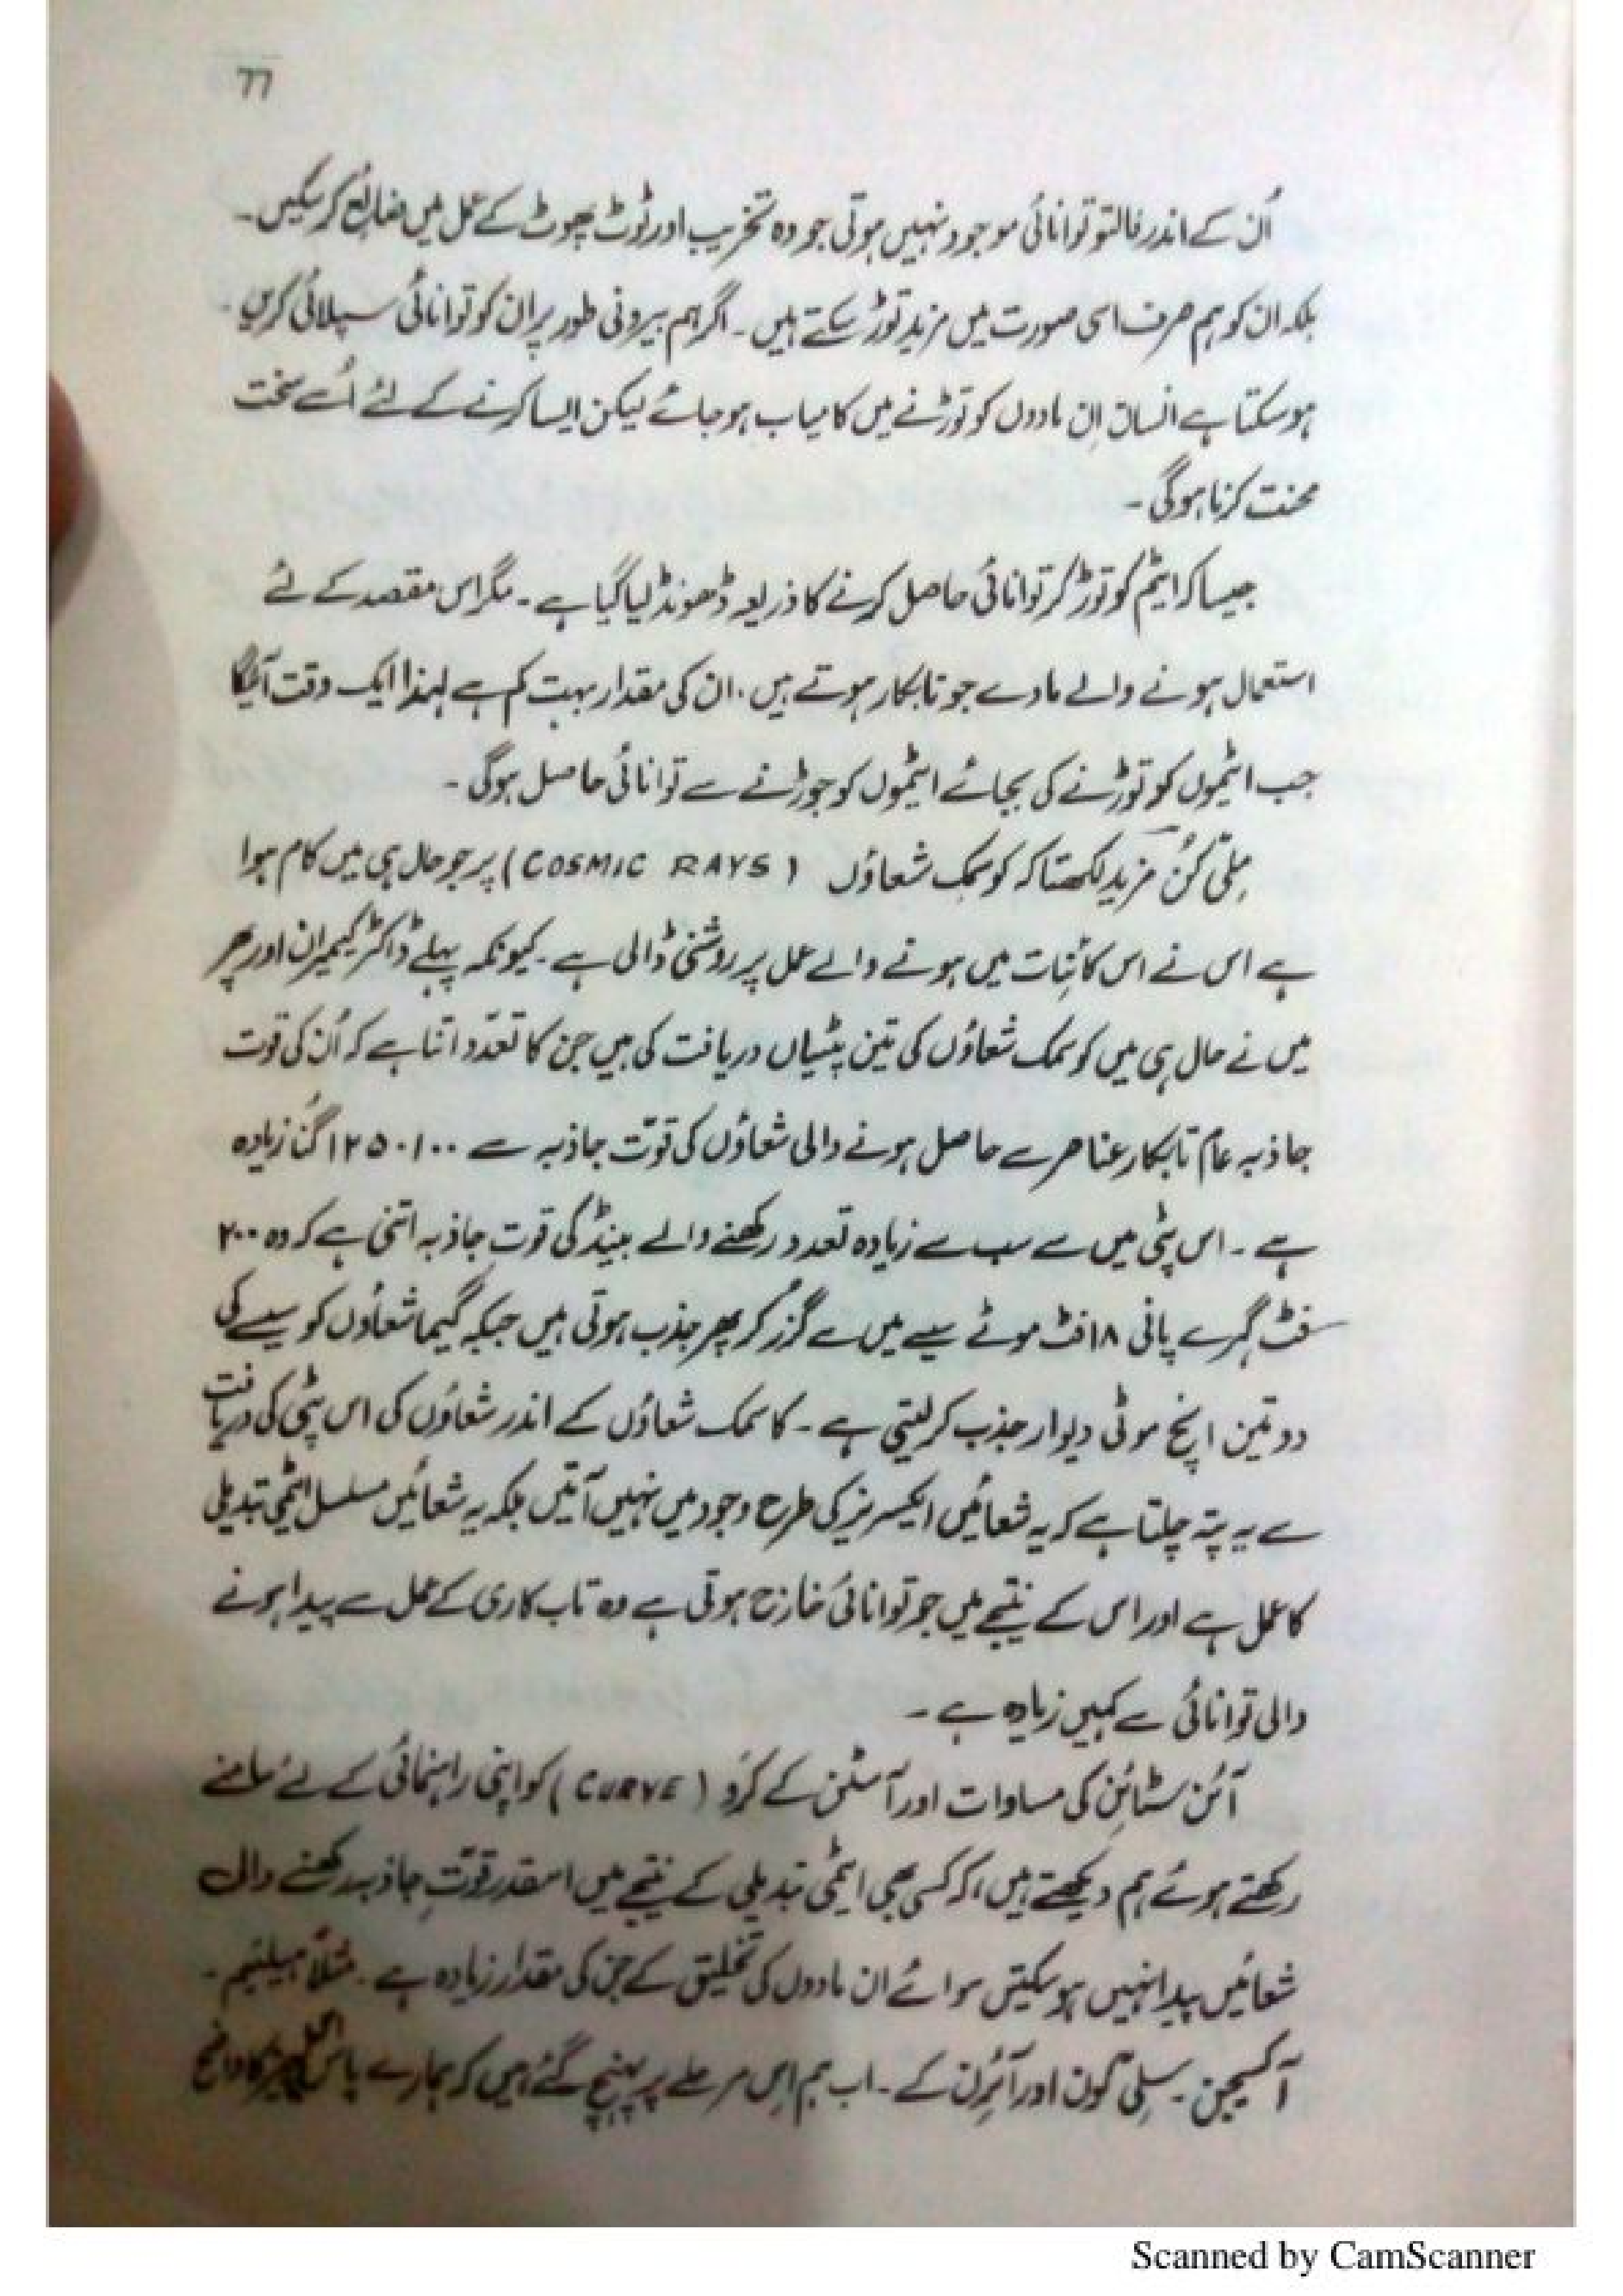 77
اُن کے اندر فالتو توانائی موجود نہیں ہوتی جو وہ تخریب اور ٹوٹ پھوٹ کے عمل میں ضائع کر سکیں۔
بلکہ ان کو ہم صرف اسی صورت میں مزید توڑ سکتے ہیں۔ اگر ہم بیرونی طور پر ان کو توانائی سپلائی کریں۔
ہو سکتا ہے انسان اِن مادوں کو توڑنے میں کامیاب ہو جائے لیکن ایسا کرنے کے لئے اُسے سخت
محنت کرنا ہوگی۔
جیسا کہ ایٹم کو توڑ کر توانائی حاصل کرنے کا ذریعہ ڈھونڈ لیا گیا ہے۔ مگر اس مقصد کے لئے
استعمال ہونے والے مادے جو تابکار ہوتے ہیں۔ ان کی مقدار بہت کم ہے لہٰذا ایک وقت آئیگا
جب ایٹموں کو توڑنے کی بجائے ایٹموں کو جوڑنے سے توانائی حاصل ہوگی۔
مِلی کَن مزید لکھتا کہ کوسمک شعاؤں (COSMIC RAYS) پر جو حال ہی میں کام ہوا
ہے اس نے اس کائنات میں ہونے والے عمل پر روشنی ڈالی ہے۔ کیونکہ پہلے ڈاکٹر کیمیران اور پھر
میں نے حال ہی میں کوسمک شعاؤں کی تین پٹیاں دریافت کی ہیں جن کا تعدّد اتنا ہے کہ اُن کی قوت
جاذبہ عام تابکار عناصر سے حاصل ہونے والی شعاؤں کی قوّت جاذبہ سے ۱۲۵۰۱۰۰ گُنا زیادہ
ہے۔ اس پٹی میں سے سب سے زیادہ تعدد رکھنے والے بینڈ کی قوت جاذبہ اتنی ہے کہ وہ ۲۰۰
فٹ گہرے پانی ۱۸ فٹ موٹے سیسے میں سے گزر کر پھر جذب ہوتی ہیں جبکہ گیما شعاؤں کو سیسے کی
دو تین اِنچ موٹی دیوار جذب کر لیتی ہے۔ کاسمک شعاؤں کے اندر شعاؤں کی اس پٹی کی دریافت
سے یہ پتہ چلتا ہے کہ یہ شعائیں ایکسریز کی طرح وجود میں نہیں آتیں بلکہ یہ شعائیں مسلسل ایٹمی تبدیلی
کا عمل ہے اور اس کے نتیجے میں جو توانائی خارج ہوتی ہے وہ تاب کاری کے عمل سے پیدا ہونے
والی توانائی سے کہیں زیادہ ہے۔
آئن سٹائن کی مساوات اور آسٹن کے کَرو (CURVE) کو اپنی راہنمائی کے لئے سامنے
رکھتے ہوئے ہم دیکھتے ہیں، کہ کسی بھی ایٹمی تبدیلی کے نتیجے میں اسقدر قوّتِ جاذبہ رکھنے والی
شعائیں پیدا نہیں ہو سکتیں سوائے ان مادوں کی تخلیق کے جن کی مقدار زیادہ ہے۔ مثلاً ہیلئیم۔
آکسیجن۔ سِلی کون اور آئرن کے۔ اب ہم اِس مرحلے پر پہنچ گئے ہیں کہ ہمارے پاس کا واضح
Scanned by CamScanner